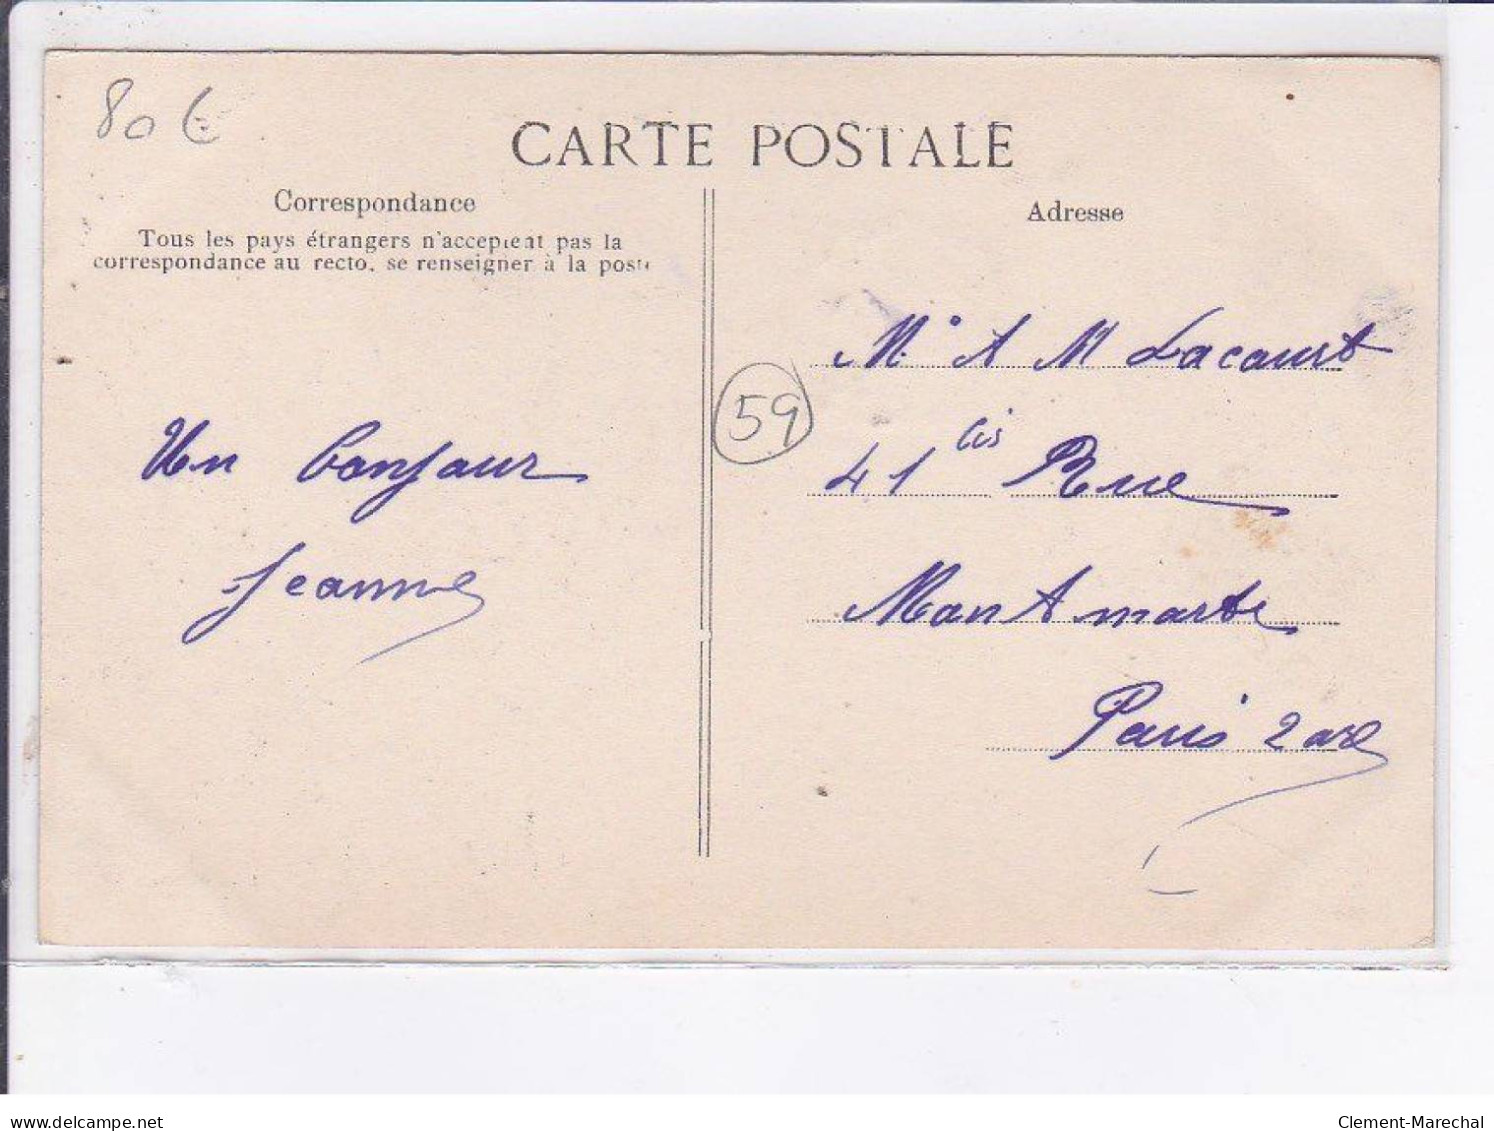 80 €
CARTE POSTALE
Correspondance
Tous les pays étrangers n'acceptent pas la
correspondance au recto, se renseigner à la poste
Un bonjour
Jeanne
59
Adresse
M. A M Lacourt
41 bis Rue
Montmartre
Paris 2 arr
delcampe.net
Clement-Marechal